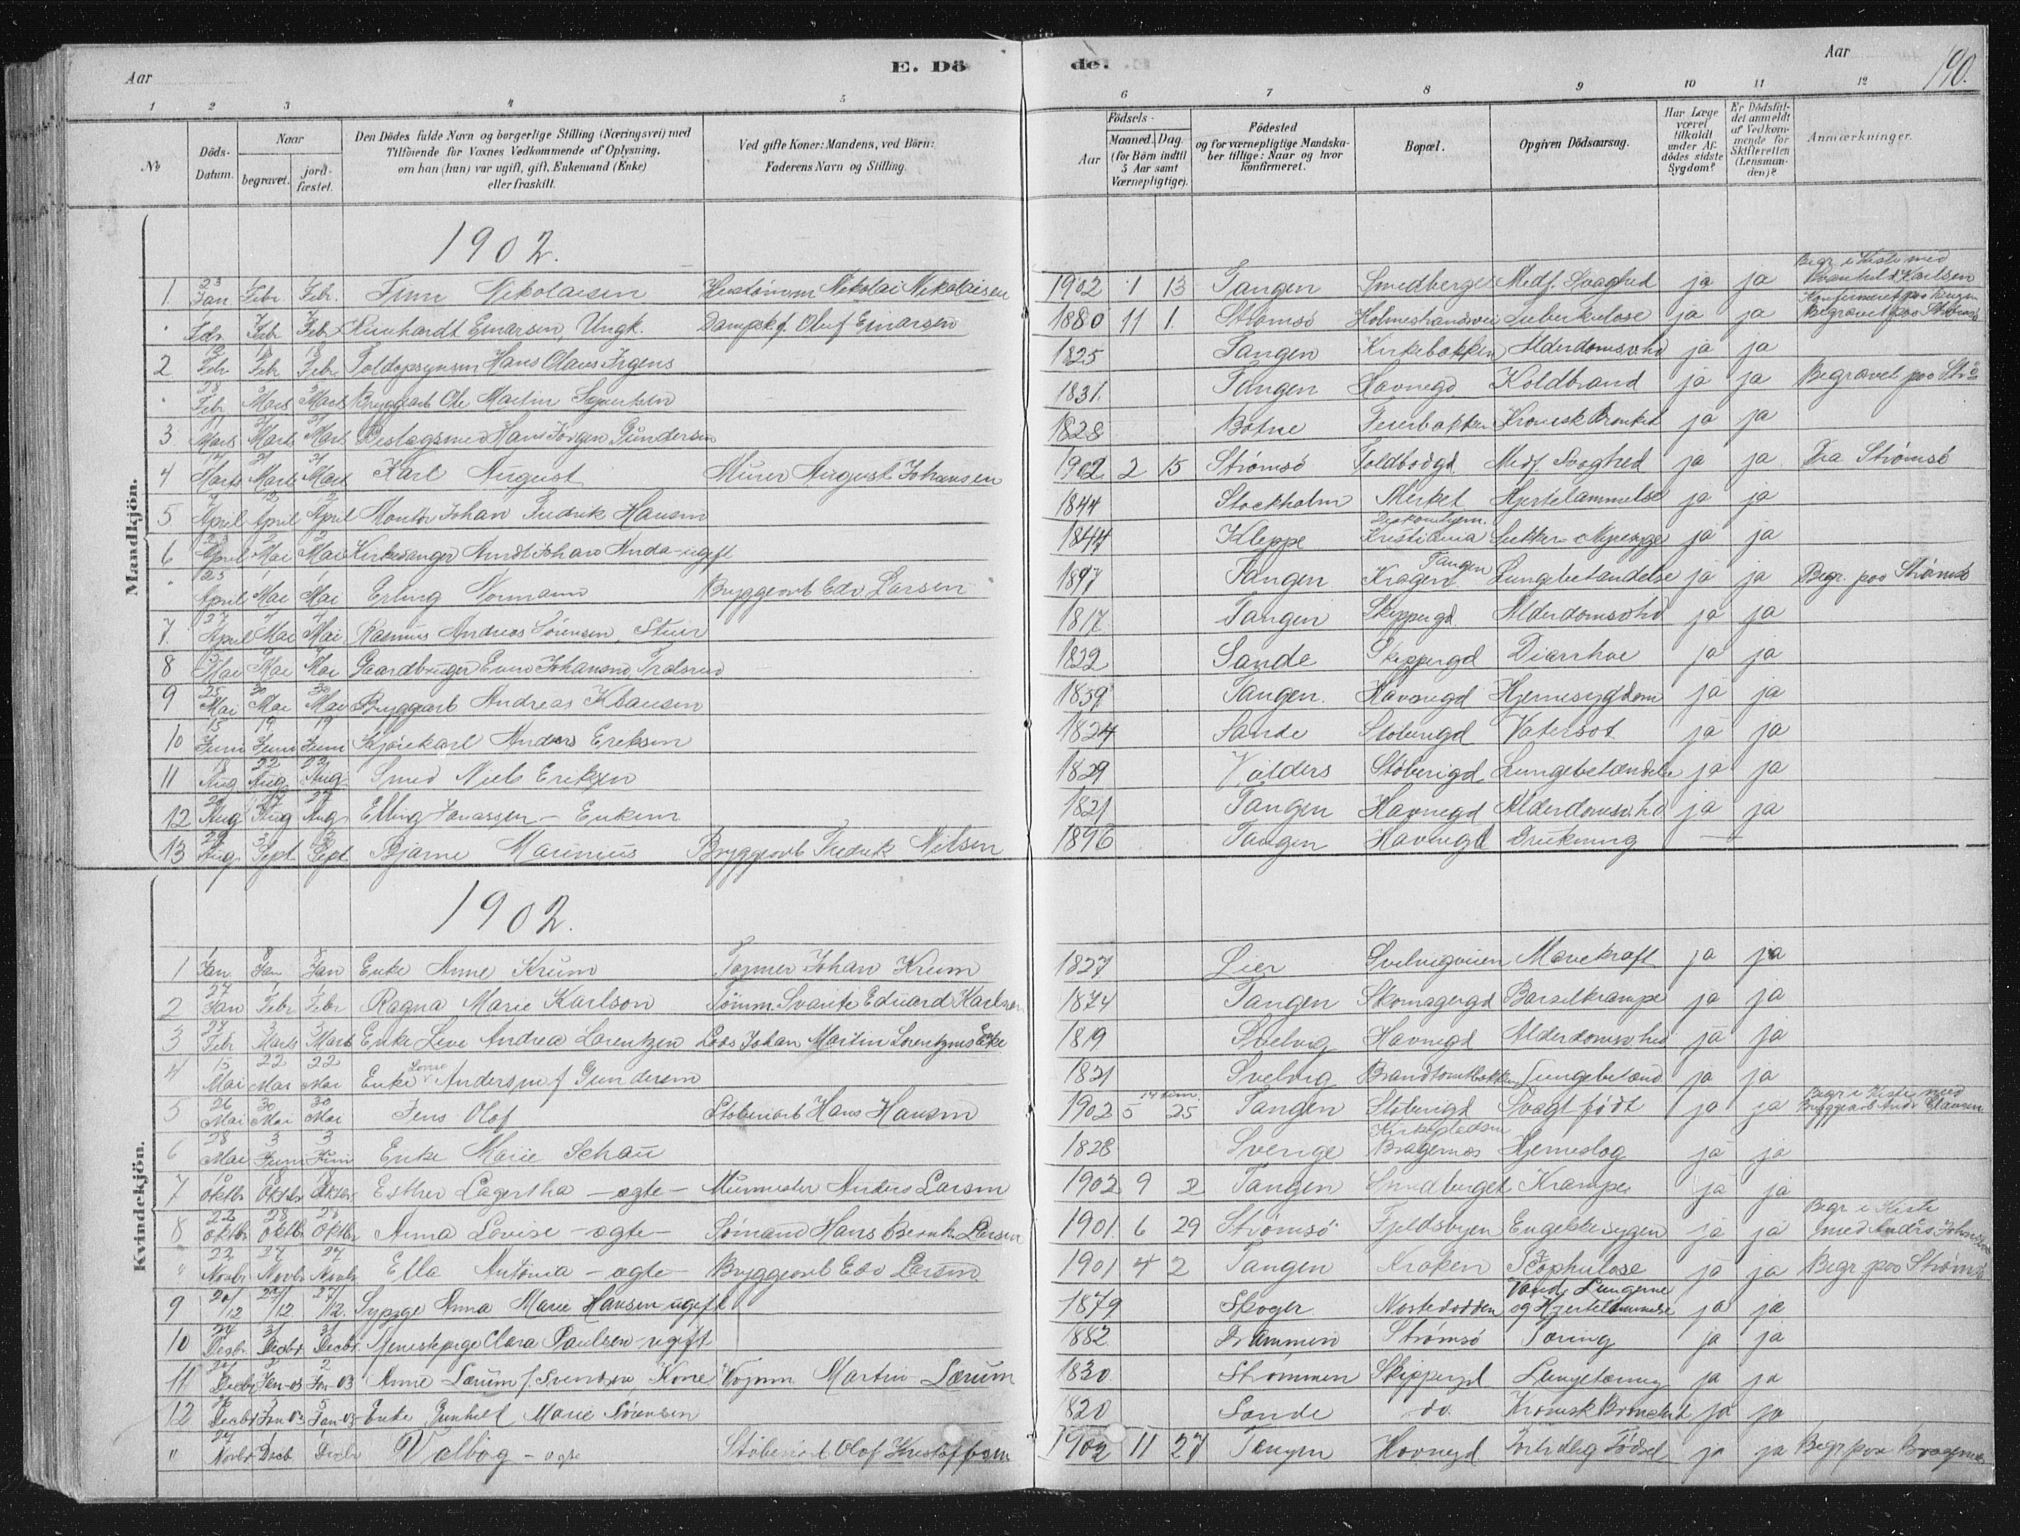 Aar
E. Dö
de.
Aar
190.
1 2 3 4 5 6 7 8 9 10 11 12
No
Döds-Datum.
Naar
begravet.
jordfæstet.
Den Dödes fulde Navn og borgerlige Stilling (Næringsvei) med
Tilföiende for Voxnes Vedkommende af Oplysning,
om han (hun) var ugift, gift, Enkemand (Enke)
eller fraskilt.
Ved gifte Koner: Mandens, ved Börn:
Faderens Navn og Stilling.
Födsels-
Aar
Maaned. Dag.
(for Börn indtil
5 Aar samt
Værnepligtige).
Födested
og for værnepligtige Mandska-
ber tillige: Naar og hvor
konfirmeret.
Bopæl.
Opgiven Dödsaarsag.
Har Læge
været
tilkaldt
under Af-
dödes sidste
Sygdom?
Er Dödsfal-
det anmeldt
af Vedkom-
mende for
Skifteretten
(Lensman-
den)?
Anmærkninger.
Mandkjön.
1902.
1 23 Jan Febr. Febr. Nikolaisen Nikolai Nikolaisen 1902 1 13 Tangen Medf. Svaghed ja ja Begr. i Kiste med Karlsen
Febr Febr Einarsen, Ungk. Dampskf. Oluf Einarsen 1880 11 1. Strømsø ja ja Begravet paa
2 Febr Febr Febr Toldopsynsm Hans Claus Irgens 1825 Tangen Kirkebakken Alderdomssvhd ja ja
28 Febr Marts Marts Bryggearb Ole Martin 1831. Tangen Havnegd Koldbrand ja ja Begravet paa
3 Marts Marts Marts Hans Jørgen Gundersen 1828 Botne Feierbakken Kronisk Bronkit ja ja
4 Marts Marts Marts Karl August Murer August Johansen 1902 2 15 Strømsø Toldbodgd Medf Svaghed ja ja Fra Strømsø
5 April April April Montør Johan Fredrik Hansen 1844 Stockholm Merket Hjertelammelse ja ja
6 April Mai Mai Kirkesanger Arndt Johan Anda - ugift 1844 Kleppe Kristiania Sukker ja ja
April Mai Mai Erling Normann Bryggearb Edv Larsen 1897 Tangen Kragen Tangen Lungebetændelse ja ja Begr. paa Strømsø
7 27 April Mai Mai Rasmus Andreas Sørensen, Stuer 1817 Tangen Skippergd Alderdomssvhd ja ja
8 Mai Mai Mai Gaardbruger Johansen 1822 Sande Skippergd Diarrhoe ja ja
9 25 Mai 30 Mai 30 Mai Bryggearb Andreas Klausen 1839 Tangen. Havnegd Hjernesygdom ja ja
10 15 Juni 19 Juni 19 Juni Kjørekarl Anders Eriksen 1824 Sande Støberigd Vatersot ja ja
11 18 Aug 22 Aug 22 Aug Smed Niels Eriksen 1829 Valders Støberigd Lungebetændelse ja ja
12 Aug Aug 27 Aug Elling Jonassen - Enkem 1821 Tangen Havnegd Alderdomssvhd ja ja
13 29 Aug 3 Sept 3 Sept Bjarne Marinius Bryggearb Fredrik Nilsen 1896 Tangen Havnegd Drukning —
Kvindekjön.
1902.
1 Jan 8 Jan 8 Jan Enke Anne Krum Tømmer Johan Krum 1827 Lier Svelvigveien Mavekræft ja ja
2 27 Jan 1 Febr 1 Febr Ragna Marie Karlson Tømm. Svante Eduard Karlsson 1874 Tangen Skomagergd Barselkrampe ja ja
3 27 Febr 3 Marts 3 Marts Enke Andrea Lorentzen Lods Johan Martin Lorentzens Enke 1819 Svelvig Havnegd Alderdomssvhed ja ja
4 15 Mai 22 Mai 22 Mai Enke Andersen f Gundersen 1821 Svelvig Lungebetænd ja ja
5 26 Mai 30 Mai 30 Mai Jens Olof Støberiarb Hans Hansen 1902 5 25 Tangen Støberigd Svagt født ja ja Begr i Kiste med Bryggearb Andr Clausen
6 28 Mai 3 Juni 3 Juni Enke Marie Schau 1828 Sverige Kirkepladsen Bragernæs Hjerneslag ja ja
7 Oktbr Oktbr Oktbr Esther Lagertha - ægte - Murmester Anders Larsen 1902 9 2 Tangen Smedberget Krampe ja ja
8 22 Oktbr 28 Oktbr 28 Oktbr Anna Lovise - ægte - Sømand Hans Bernh. Larsen 1901 6 29 Strømsø Fjeldsbyen Engelske sygen ja ja Begr i Kiste med
" 22 Novbr 27 Novbr 27 Novbr Ella Antonia - ægte - Bryggearb Edv Larsen 1901 4 2 Tangen Kroken Skrophulose ja ja Begr paa Strømsø
9 20/12 27/12 27/12 Sypige Anna Marie Hansen - ugift 1879 Skoger Nøsteodden Vand i Lungerne og Hjertelammelse ja ja
10 24 Decbr 31 Decbr 31 Decbr Tjenestepige Clara Paulsen - ugift 1882 Drammen Strømsø Tæring ja ja
11 Decbr Jan-03 Jan-03 Anne Lærum f. Svendsen, Kone Vognm Martin Lærum 1830 Strømmen Skippergd Lungetæring ja ja
12 Decbr Jan 03 Jan-03 Enke Gunhild Marie Sørensen 1820 Sande do. Kronisk Bronchit ja ja
" 27 Novbr Decb Decbr Valbog - ægte Støberiarb Olof Kristoffersen 1902 11 27 Tangen Havnegd Fortidlig Fødsel ja ja Begr paa Bragernæs